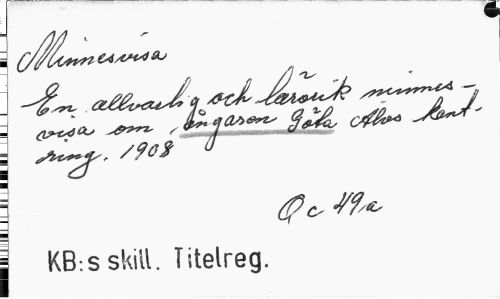 Minnesvisa
En allvarlig och lärorik minnes-
visa om ångaren Göta Älvs kant-
ring. 1908
Qc 49a
KB:s skill. Titelreg.